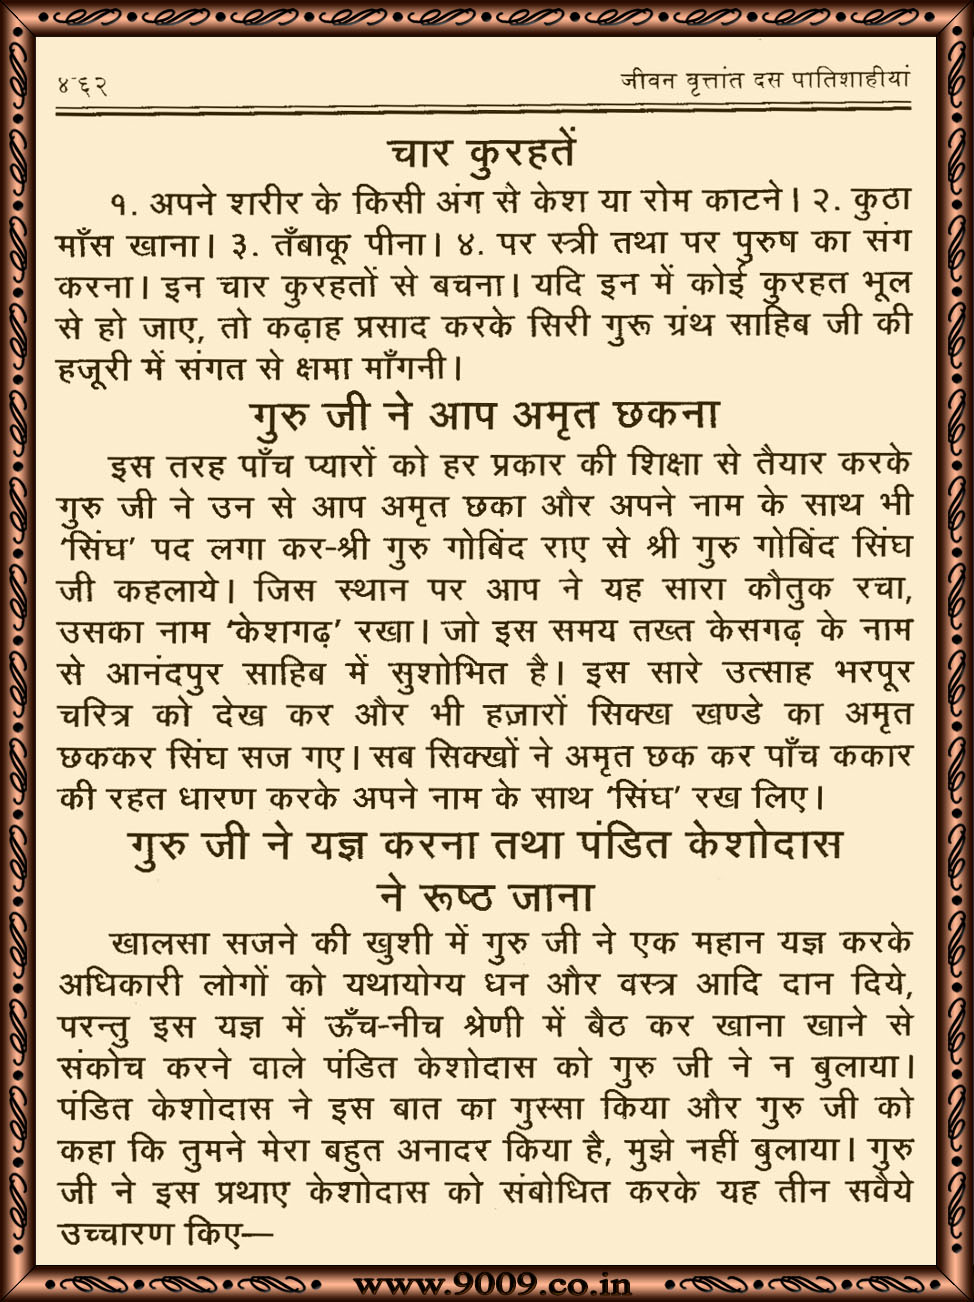 ४६२
जीवन वृत्तांत दस पातिशाहीयां
चार कुरहतें
१. अपने शरीर के किसी अंग से केश या रोम काटने। २. कुठा
माँस खाना। ३. तँबाकू पीना। ४. पर स्त्री तथा पर पुरुष का संग
करना। इन चार कुरहतों से बचना। यदि इन में कोई कुरहत भूल
से हो जाए, तो कढ़ाह प्रसाद करके सिरी गुरू ग्रंथ साहिब जी की
हजूरी में संगत से क्षमा माँगनी।
गुरु जी ने आप अमृत छकना
इस तरह पाँच प्यारों को हर प्रकार की शिक्षा से तैयार करके
गुरु जी ने उन से आप अमृत छका और अपने नाम के साथ भी
‘सिंघ’ पद लगा कर-श्री गुरु गोबिंद राए से श्री गुरु गोबिंद सिंघ
जी कहलाये। जिस स्थान पर आप ने यह सारा कौतुक रचा,
उसका नाम ‘केशगढ़’ रखा। जो इस समय तख्त केसगढ़ के नाम
से आनंदपुर साहिब में सुशोभित है। इस सारे उत्साह भरपूर
चरित्र को देख कर और भी हज़ारों सिक्ख खण्डे का अमृत
छककर सिंघ सज गए। सब सिक्खों ने अमृत छक कर पाँच ककार
की रहत धारण करके अपने नाम के साथ ‘सिंघ’ रख लिए।
गुरु जी ने यज्ञ करना तथा पंडित केशोदास
ने रूष्ठ जाना
खालसा सजने की खुशी में गुरु जी ने एक महान यज्ञ करके
अधिकारी लोगों को यथायोग्य धन और वस्त्र आदि दान दिये,
परन्तु इस यज्ञ में ऊँच-नीच श्रेणी में बैठ कर खाना खाने से
संकोच करने वाले पंडित केशोदास को गुरु जी ने न बुलाया।
पंडित केशोदास ने इस बात का गुस्सा किया और गुरु जी को
कहा कि तुमने मेरा बहुत अनादर किया है, मुझे नहीं बुलाया। गुरु
जी ने इस प्रथाए केशोदास को संबोधित करके यह तीन सवैये
उच्चारण किए—
www.9009.co.in